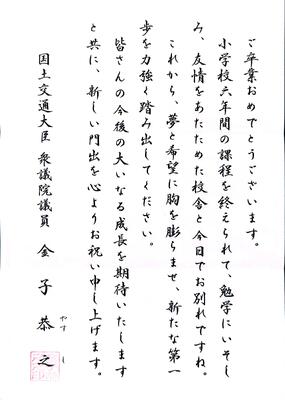 ご卒業おめでとうございます。
小学校六年間の課程を終えられて、勉学にいそし
み、友情をあたためた校舎と今日でお別れですね。
これから、夢と希望に胸を膨らませ、新たな第一
歩を力強く踏み出してください。
皆さんの今後の大いなる成長を期待いたします
と共に、新しい門出を心よりお祝い申し上げます。
国土交通大臣 衆議院議員 金子恭之
やすし